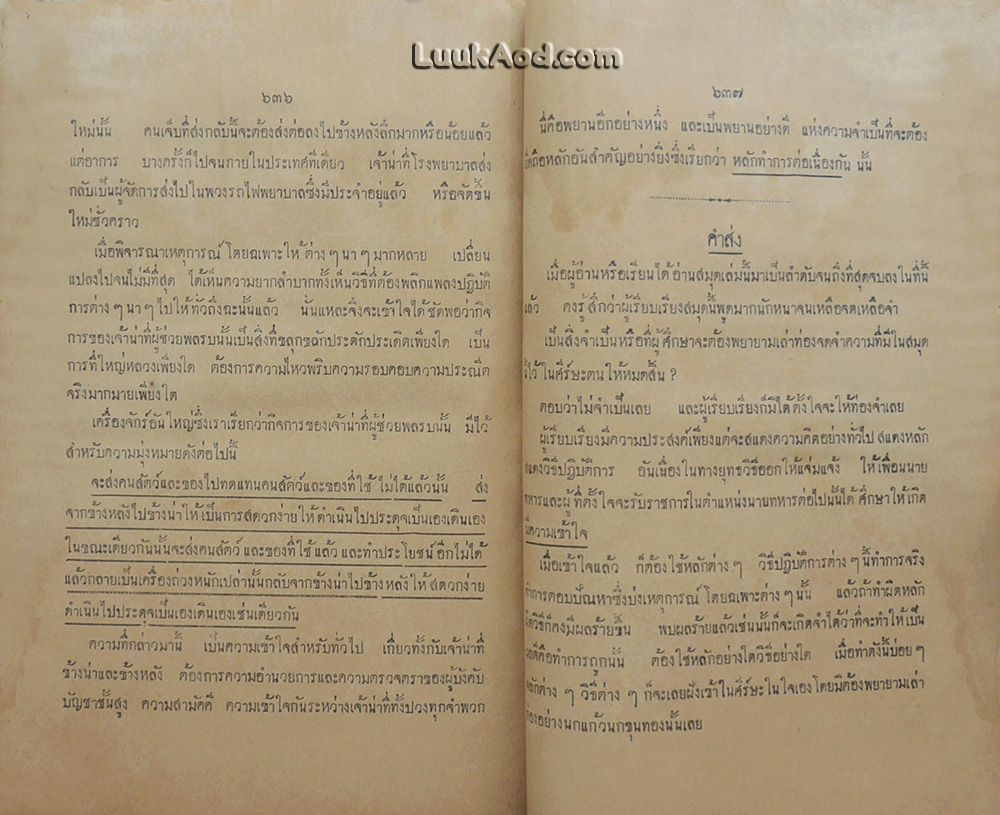 LuukAod.com
๖๓๖
ใหม่นั้น คนเจ็บที่ส่งกลับนี้จะต้องส่งต่อลงไปข้างหลังลึกมากหรือน้อยแล้ว
แต่อาการ บางครั้งก็ไปจนภายในประเทศทีเดียว เจ้าน่าที่โรงพยาบาลส่ง
กลับเป็นผู้จัดการส่งไปในพวงรถไฟพยาบาลซึ่งมีประจำอยู่แล้ว หรือจัดขึ้น
ใหม่ชั่วคราว
เมื่อพิจารณาเหตุการณ์ โดยฉเพาะให้ ต่าง ๆ นา ๆ มากหลาย เปลี่ยน
แปลงไปจนไม่มีที่สุด ได้เห็นความยากลำบากทั้งเห็นวิธีที่ต้องพลิกแพลงปฏิบัติ
การต่าง ๆ นา ๆ ไปให้ทั่วถึงฉะนั้นแล้ว นั่นแหละจึงจะเข้าใจได้ชัดพอว่ากิจ
การของเจ้าน่าที่ผู้ช่วยพลรบนั้นเป็นสิ่งที่ขลุกขลักประดักประเดิดเพียงใด เป็น
การที่ใหญ่หลวงเพียงใด ต้องการความไหวพริบความรอบคอบความประณีต
จริงมากมายเพียงใด
เครื่องจักร์อันใหญ่ซึ่งเราเรียกว่ากิจการของเจ้าน่าที่ผู้ช่วยพลรบนั้น มีไว้
สำหรับความมุ่งหมายดังต่อไปนี้
จะส่งคนสัตว์และของไปทดแทนคนสัตว์และของที่ใช้ไม่ได้แล้วนั้น ส่ง
จากข้างหลังไปข้างน่าให้เป็นการสดวกง่ายให้ดำเนินไปประดุจเป็นเองเดินเอง
ในขณะเดียวกันนั้นจะส่งคนสัตว์ และของที่ใช้แล้ว และทำประโยชน์อีกไม่ได้
แล้วกลายเป็นเครื่องถ่วงหนักเปล่านั้นกลับจากข้างน่าไปข้างหลังให้สดวกง่าย
ดำเนินไปประดุจเป็นเองเดินเองเช่นเดียวกัน
ความที่กล่าวมานี้ เป็นความเข้าใจสำหรับทั่วไป เกี่ยวทั้งกับเจ้าน่าที่
ข้างน่าและข้างหลัง ต้องการความอำนวยการและความตรวจตราของผู้บังคับ
บัญชาชั้นสูง ความสามัคคี ความเข้าใจกันระหว่างเจ้าน่าที่ทั้งปวงทุกจำพวก
๖๓๗
นี่คือพยานอีกอย่างหนึ่ง และเป็นพยานอย่างดี แห่งความจำเป็นที่จะต้อง
ยึดถือหลักอันสำคัญอย่างยิ่งซึ่งเรียกว่า หลักทำการต่อเนื่องกัน นั้น
คำส่ง
เมื่อผู้อ่านหรือเรียนได้อ่านสมุดเล่มนี้มาเป็นลำดับจนถึงที่สุดจบลงในที่นี้
แล้ว คงรู้สึกว่าผู้เรียบเรียงสมุดนี้พูดมากนักหนาจนเหลือจดเหลือจำ
เป็นสิ่งจำเป็นหรือที่ผู้ศึกษาจะต้องพยายามเล่าท่องจดจำความที่มีในสมุด
นี้ไว้ในศีร์ษะตนให้หมดสิ้น ?
ตอบว่าไม่จำเป็นเลย และผู้เรียบเรียงก็มิได้ตั้งใจจะให้ท่องจำเลย
ผู้เรียบเรียงมีความประสงค์เพียงแต่จะสแดงความคิดอย่างทั่วไป สแดงหลัก
สแดงวิธีปฏิบัติการ อันเนื่องในทางยุทธวิธีออกให้แจ่มแจ้ง ให้เพื่อนนาย
ทหารและผู้ที่ตั้งใจจะรับราชการในตำแหน่งนายทหารต่อไปนั้นได้ศึกษาให้เกิด
มีความเข้าใจ
เมื่อเข้าใจแล้ว ก็ต้องใช้หลักต่าง ๆ วิธีปฏิบัติการต่าง ๆ นี้ทำการจริง
ทำการตอบปัณหาซึ่งบ่งเหตุการณ์ โดยฉเพาะต่าง ๆ นั้น แล้วถ้าทำผิดหลัก
ผิดวิธีก็คงมีผลร้ายขึ้น พบผลร้ายแล้วเช่นนั้นก็จะเกิดจำได้ว่าที่จะทำให้เป็น
ผลดีคือทำการถูกนั้น ต้องใช้หลักอย่างใดวิธีอย่างใด เมื่อทำดังนี้บ่อย ๆ
หลักต่าง ๆ วิธีต่าง ๆ ก็จะเลยฝังเข้าในศีร์ษะในใจเองโดยมิต้องพยายามเล่า
ท่องอย่างนกแก้วนกขุนทองนั้นเลย